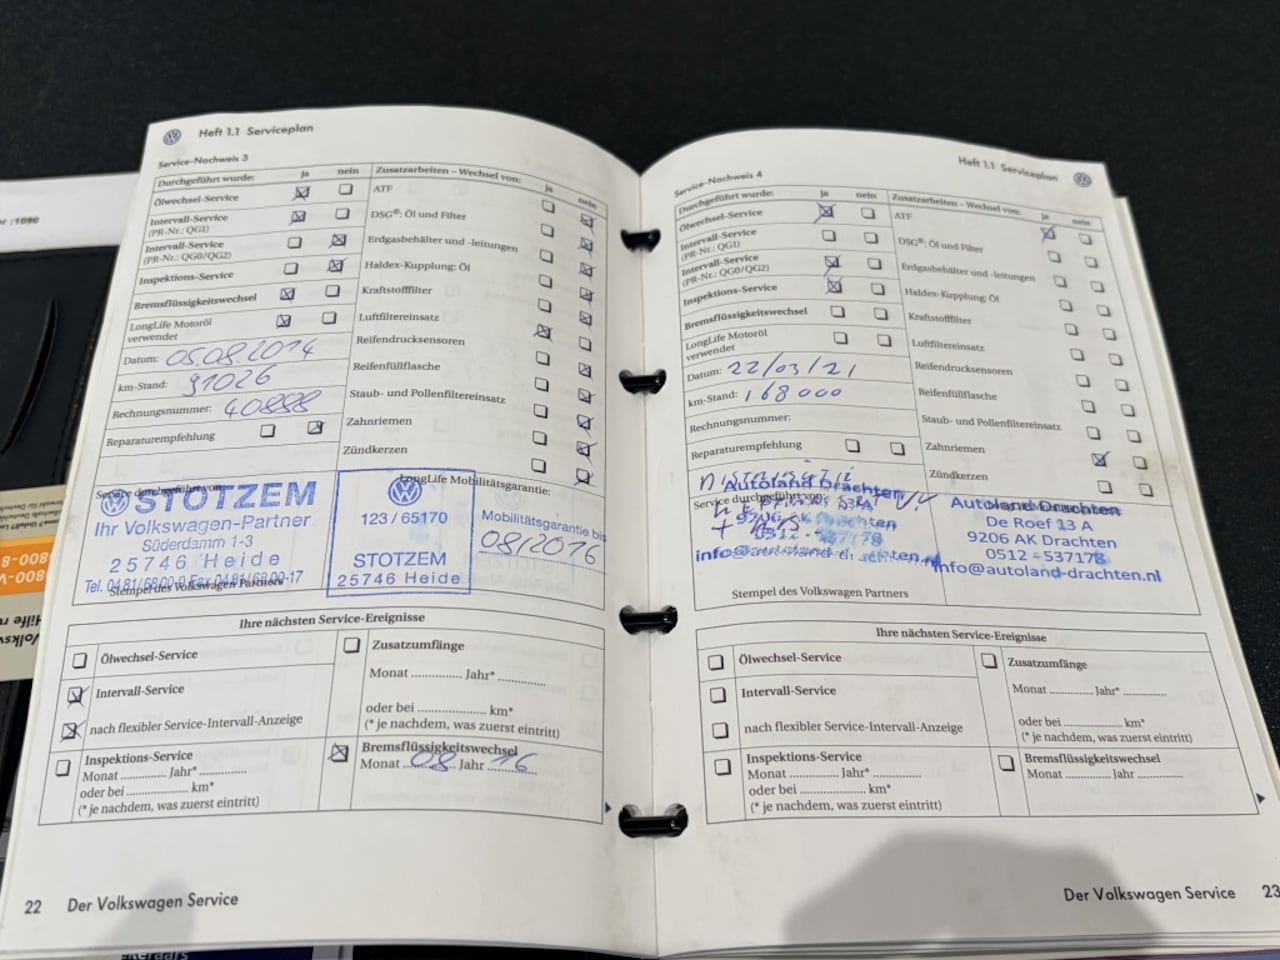 Heft 1.1 Serviceplan
Service-Nachweis 3
Durchgeführt wurde: ja nein
Ölwechsel-Service
Intervall-Service
(PR-Nr.: QG1)
Intervall-Service
(PR-Nr.: QG0/QG2)
Inspektions-Service
Bremsflüssigkeitswechsel
LongLife Motoröl
verwendet
Datum: 05.08.2014
km-Stand: 91026
Rechnungsnummer: 40888
Reparaturempfehlung
Zusatzarbeiten – Wechsel von: ja nein
ATF
DSG®: Öl und Filter
Erdgasbehälter und -leitungen
Haldex-Kupplung: Öl
Kraftstofffilter
Luftfiltereinsatz
Reifendrucksensoren
Reifenfüllflasche
Staub- und Pollenfiltereinsatz
Zahnriemen
Zündkerzen
Service durchgeführt von:
STOTZEM
Ihr Volkswagen-Partner
Süderdamm 1-3
25746 Heide
Tel. 0481/6800-0 Fax 0481/6800-17
Stempel des Volkswagen Partners
123/65170
STOTZEM
25746 Heide
LongLife Mobilitätsgarantie:
Mobilitätsgarantie bis
08/2016
Ihre nächsten Service-Ereignisse
Ölwechsel-Service
Intervall-Service
nach flexibler Service-Intervall-Anzeige
Inspektions-Service
Monat ............. Jahr* .............
oder bei .................... km*
(* je nachdem, was zuerst eintritt)
Zusatzumfänge
Monat ............. Jahr* .............
oder bei .................... km*
(* je nachdem, was zuerst eintritt)
Bremsflüssigkeitswechsel
Monat 08 Jahr 16
22 Der Volkswagen Service
Heft 1.1 Serviceplan
Service-Nachweis 4
Durchgeführt wurde: ja nein
Ölwechsel-Service
Intervall-Service
(PR-Nr.: QG1)
Intervall-Service
(PR-Nr.: QG0/QG2)
Inspektions-Service
Bremsflüssigkeitswechsel
LongLife Motoröl
verwendet
Datum: 22/03/21
km-Stand: 168000
Rechnungsnummer:
Reparaturempfehlung
Zusatzarbeiten – Wechsel von: ja nein
ATF
DSG®: Öl und Filter
Erdgasbehälter und -leitungen
Haldex-Kupplung: Öl
Kraftstofffilter
Luftfiltereinsatz
Reifendrucksensoren
Reifenfüllflasche
Staub- und Pollenfiltereinsatz
Zahnriemen
Zündkerzen
Service durchgeführt von:
Autoland Drachten
info@autoland-drachten.nl
Stempel des Volkswagen Partners
Autoland Drachten
De Roef 13 A
9206 AK Drachten
0512 - 537178
info@autoland-drachten.nl
Ihre nächsten Service-Ereignisse
Ölwechsel-Service
Intervall-Service
nach flexibler Service-Intervall-Anzeige
Inspektions-Service
Monat ............. Jahr* .............
oder bei .................... km*
(* je nachdem, was zuerst eintritt)
Zusatzumfänge
Monat ............. Jahr* .............
oder bei .................... km*
(* je nachdem, was zuerst eintritt)
Bremsflüssigkeitswechsel
Monat ............. Jahr .............
Der Volkswagen Service 23